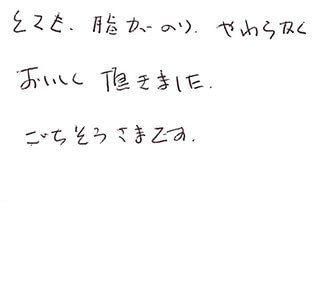 とても、脂がのり、やわらかく
おいしく頂きました.
ごちそうさまです.